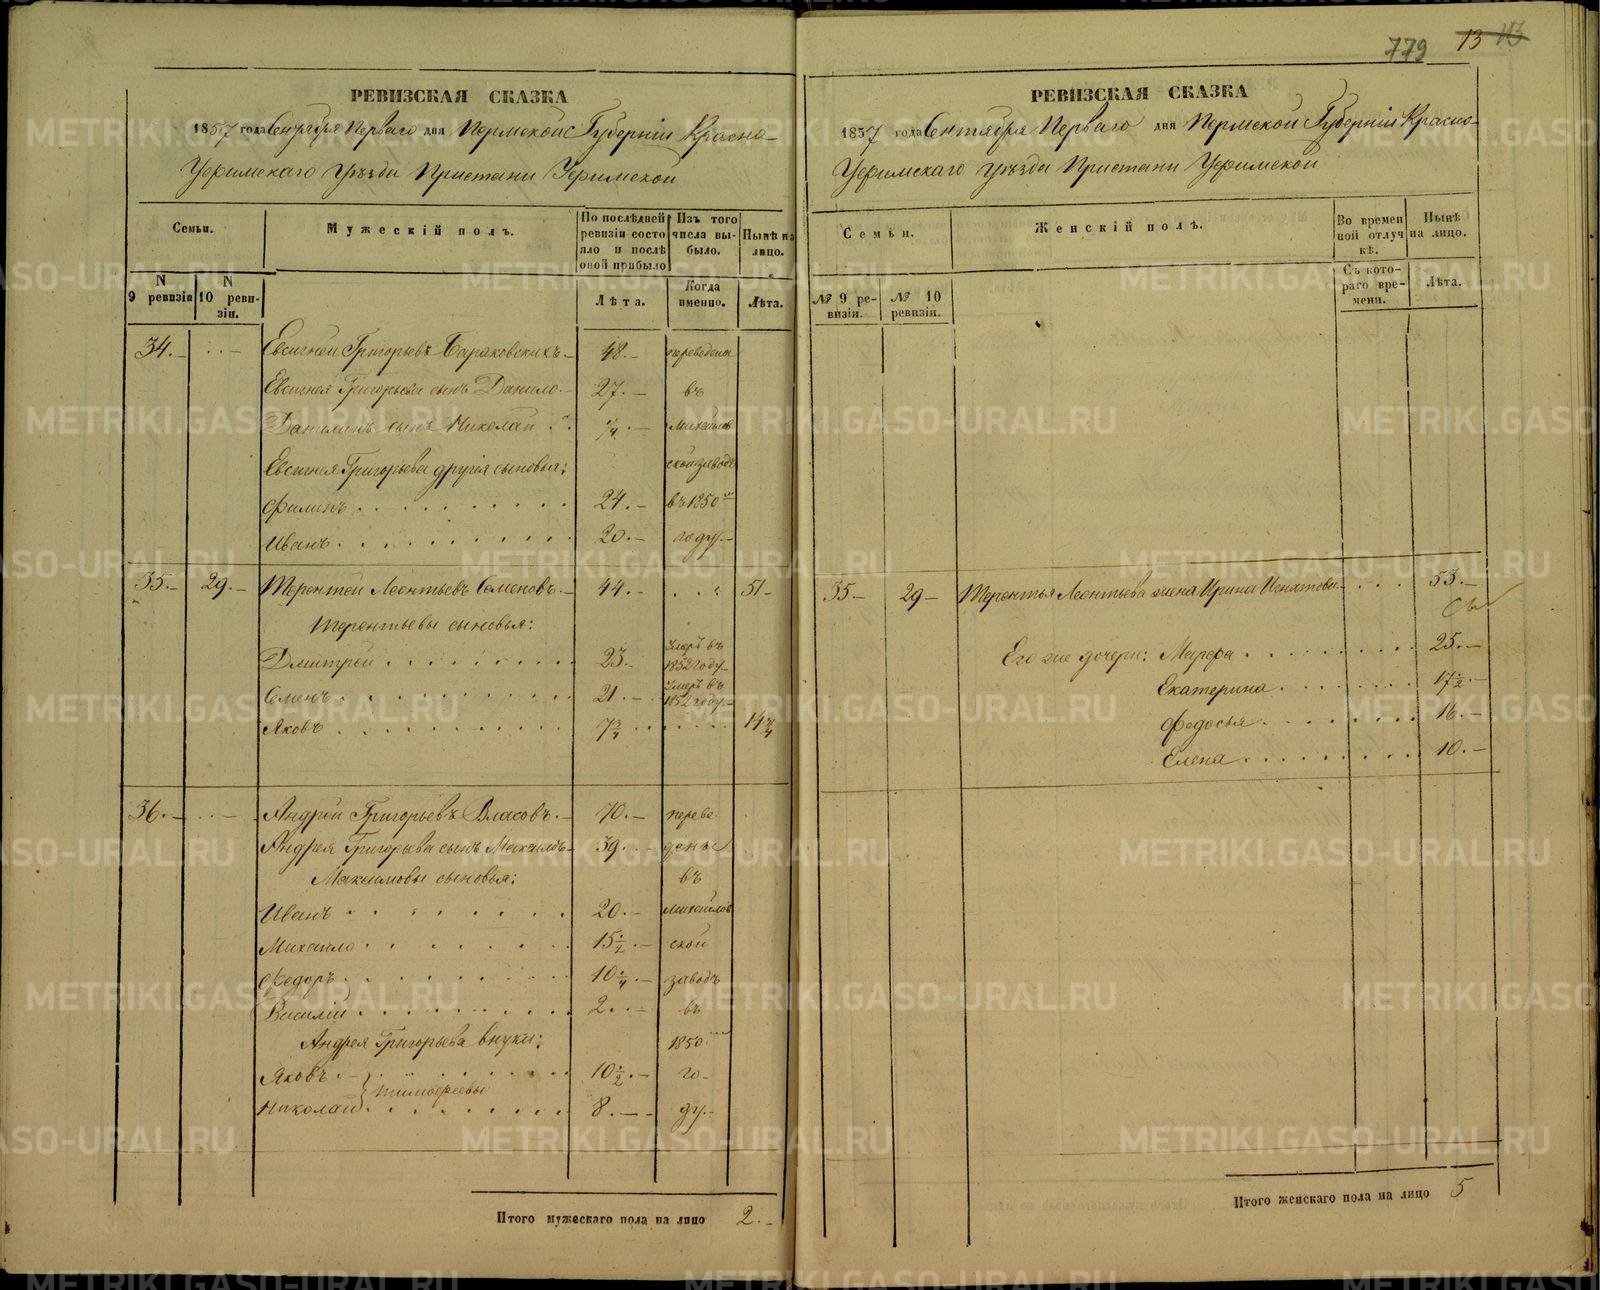 779 13 13
РЕВИЗСКАЯ СКАЗКА
1857 года Сентября Перваго дня Пермской Губерніи Красно-
Уфимскаго уѣзда Пристани Уфимской
Семьи.
Мужескій полъ.
По послѣдней ревизіи состояло и послѣ оной прибыло
Изъ того числа выбыло.
Нынѣ на лицо.
N 9 ревизіи
N 10 ревизіи.
Лѣта.
Когда именно.
Лѣта.
34. Евсигней Григорьевъ 48. переведены
Евсигнея Григорьева сынъ Данило 27. въ
Данилинъ сынъ Николай 1/4. Михайлов
Евсигнея Григорьева другія сыновья: ской заводъ
Филипъ 24. въ 1850
Иванъ 20. году.
35. 29. Терентей Леонтьевъ Семеновъ 44. 51
Терентьевы сыновья:
Дмитрей 23. Умеръ въ 1852 году
Семенъ 21. Умеръ въ 1852 году
Яковъ 7 3/4 14 3/4
36. Андрей Григорьевъ Власовъ 70. переве
Андрея Григорьева сынъ Максимъ 39. дены
Максимовы сыновья: въ
Иванъ 20. Михайлов
Михаило 15 1/2. ской
Федоръ 10 1/4. заводъ
Василій 2. въ
Андрея Григорьева внуки: 1850
Яковъ 10 1/2. го-
Тимофеевы
Николай 8. ду.
Итого мужескаго пола на лицо 2.
РЕВИЗСКАЯ СКАЗКА
1857 года Сентября Перваго дня Пермской Губерніи Красно-
Уфимскаго уѣзда Пристани Уфимской
Семьи.
Женскій полъ.
Во временной отлучкѣ.
Нынѣ на лицо.
№ 9 ревизіи.
№ 10 ревизіи.
Съ котораго времени.
Лѣта.
35 29 Терентья Леонтьева жена Ирина Игнатова 53.
Его же дочери: Марфа 25.
Екатерина 17 1/2.
Федосья 16.
Елена 10.
Итого женскаго пола на лицо 5
METRIKI.GASO-URAL.RU